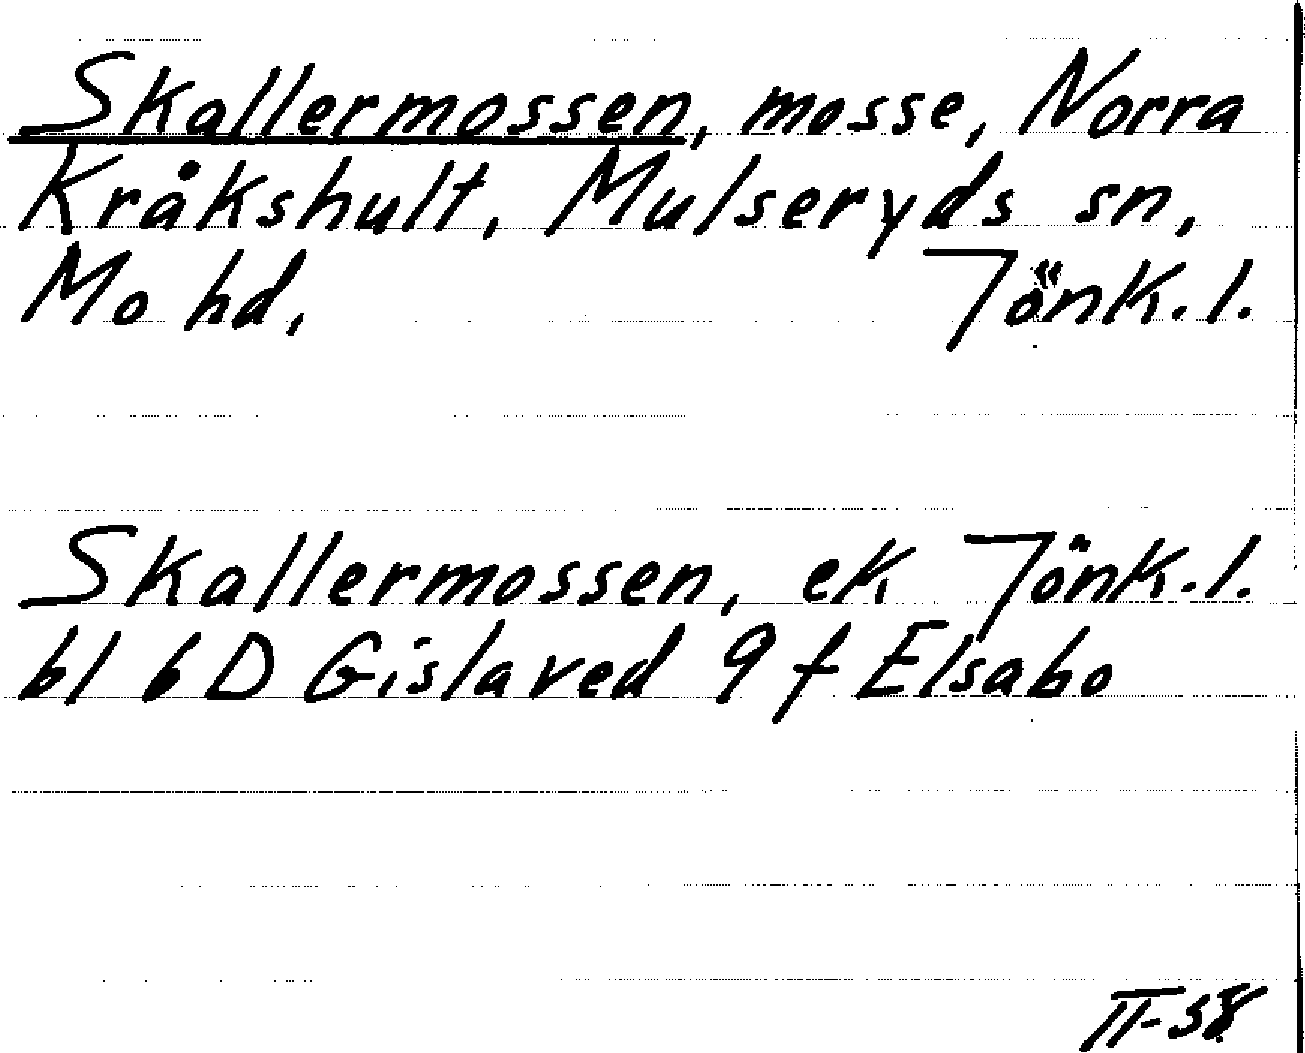 Skallermossen, mosse, Norra
Kråkshult, Mulseryds sn,
Mo hd, Jönk. l.
Skallermossen, ek Jönk. l.
bl 6 D Gislaved 9 f Elsabo
II-58